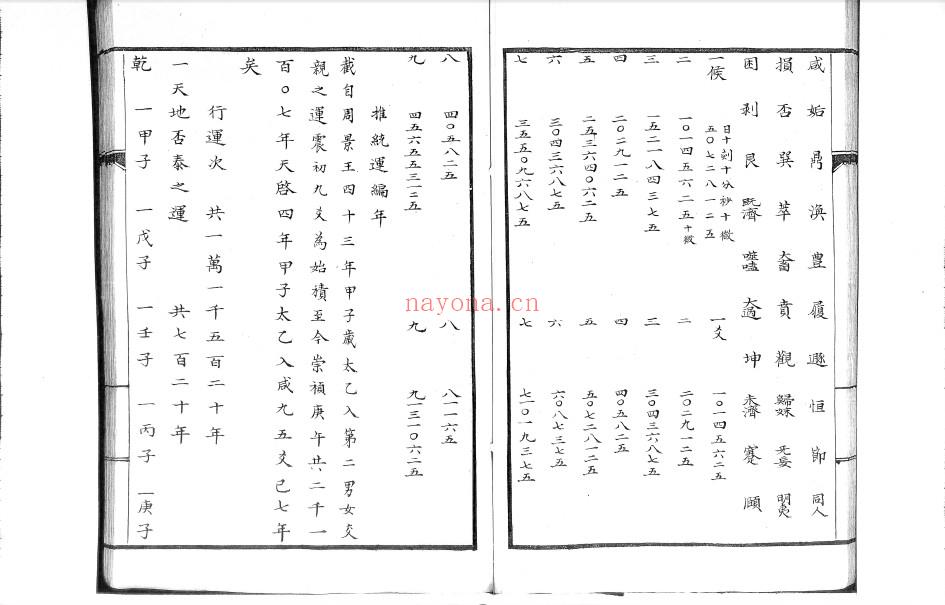 咸 姤 鼎 渙 豊 履 遯 恒 節 同人
損 否 巽 萃 大畜 賁 觀 歸妹 无妄 明夷
困 剥 艮 既濟 噬嗑 大過 坤 未濟 蹇 頤
一候 日十刻十分秒十微 五〇七二八一二五 一爻 一〇一四五六二五
二 一〇一四五六二五十微 二 二〇二九一二五
三 一五二一八四三七五 三 三〇四三六八七五
四 二〇二九一二五 四 四〇五八二五
五 二五三六四〇六二五 五 五〇七二八一二五
六 三〇四三六八七五 六 六〇八七三七五
七 三五五〇九六八七五 七 七一〇一九三七五
八 四〇五八二五 八 八一一六五
九 四五六五五三一二五 九 九一三一〇六二五
推統運編年
截自周景王四十三年甲子歲太乙入第二男女交
親之運震初九爻為始積至今崇禎庚午共二千一
百〇七年天啓四年甲子太乙入咸九五爻已七年
矣
行運次 共一萬一千五百二十年
一天地否泰之運 共七百二十年
乾 一甲子 一戊子 一壬子 一丙子 一庚子
nayona.cn